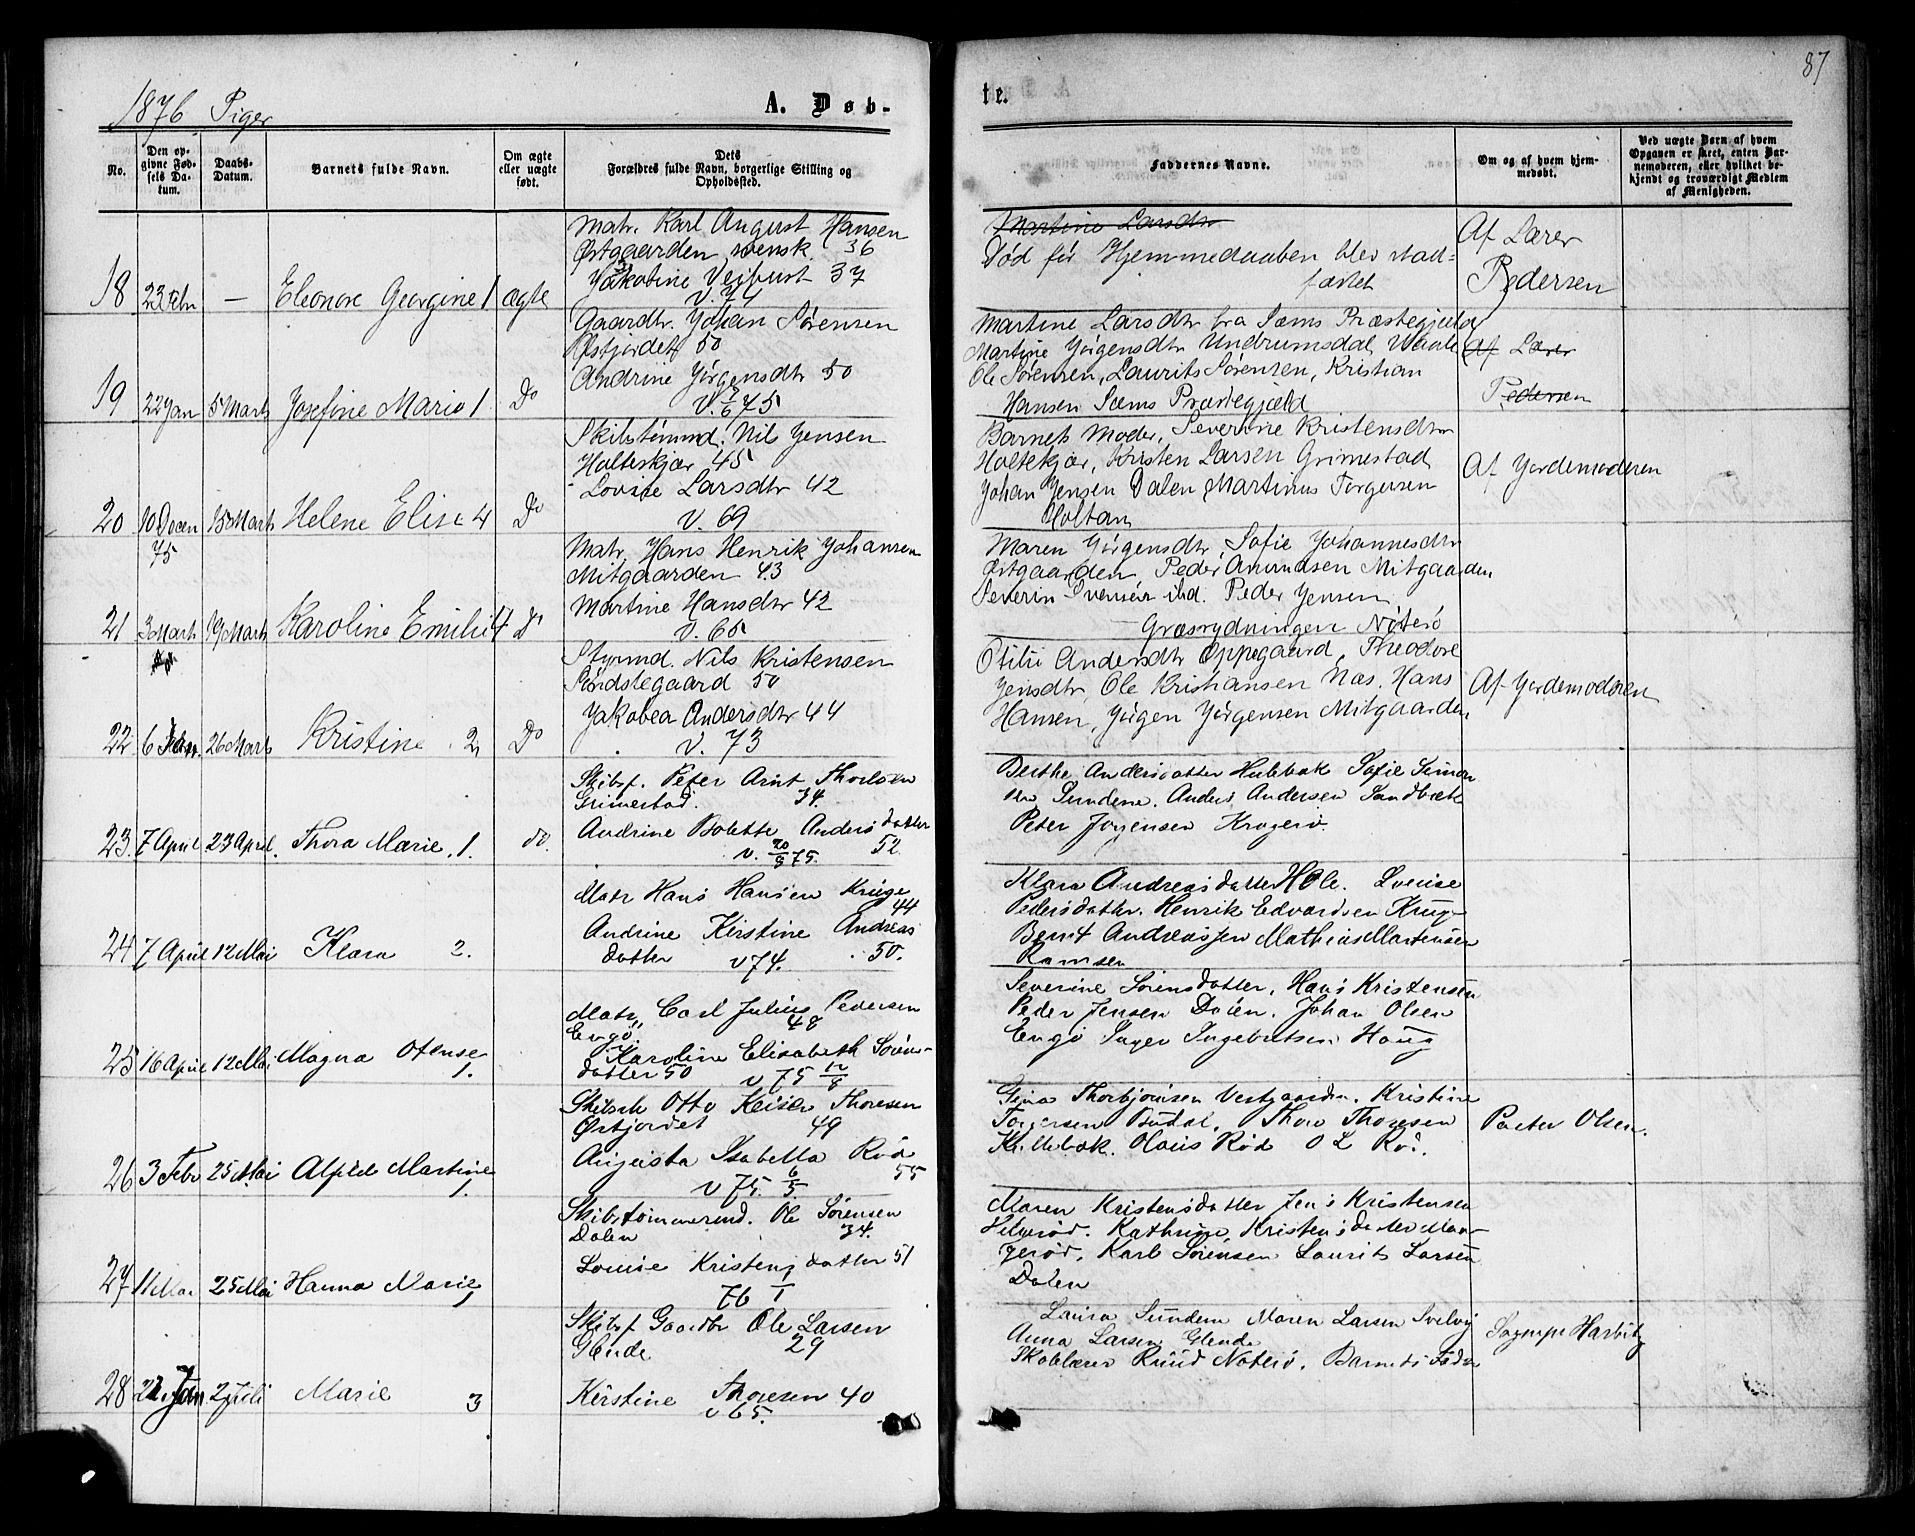 1876 Piger
A. Døb-
te.
87
No.
Den op-
givne Fød-
sels Da-
tum.
Daabs-
Datum.
Barnets fulde Navn.
Om ægte
eller uægte
født.
Dets
Forældres fulde Navn, borgerlige Stilling og
Opholdssted.
Faddernes Navne.
Om og af hvem hjem-
medøbt.
Ved uægte Børn af hvem
Opgaven er skeet, enten Bar-
nemoderen, eller hvilket be-
kjendt og troværdigt Medlem
af Menigheden.
18 23 Febr — Eleonore Georgine 1 ægte
Matr. Karl August Hansen
Østgaarden svensk 36
Jakobine Veibust 37
V. 74
Martine Larsdtr
Død før Hjemmedaaben blev stad=
fæstet
Af Lærer
Pedersen
19 22 Jan 5 Marts Josefine Marie 1 Do
Gaardbr. Johan Sørensen
Østjordet 50
Andrine Jørgensdtr 50
V. 7/6 75
Martine Larsdtr fra Sæms Præstegjeld
Martine Jørgensdtr Undrumsdal Vaale
Ole Sørensen, Laurits Sørensen, Kristian
Hansen Sæms Præstegjæld
Af Lærer
Pedersen
20 10 Decen 75 15 Marts Helene Elise 4 Do
Skibstømmd. Nils Jensen
Holteskjær 45
Lovise Larsdtr 42
V. 69
Barnets Moder, Severine Kristensdtr
Holtekjær, Kristen Larsen Grimestad
Johan Jensen Dalen Martinus Torgersen
Holtan
Af Jordemoderen
21 3 Marts 19 Marts Karoline Emilie 4 Do
Matr. Hans Henrik Johansen
Mitgaarden 43
Martine Hansdtr 42
V. 65
Maren Jørgensdtr, Sofie Johannesdtr
Østgaarden, Peder Amundsen Mitgaarden
Severin ibd. Peder Jensen
Græsrydningen Nøterø
22 6 26 Marts Kristine 2 Do
Styrmd. Nils Kristensen
50
Jakobea Andersdtr 44
V. 73
Otilie Andersdtr Oppegaard, Theodore
Jensdtr, Ole Kristiansen Næs, Hans
Hansen, Jørgen Jørgensen Mitgaarden
Af Jordemoderen
23. 7 April 23 April. Thora Marie. 1. do.
Skibsf. Peter Arnt Thorbsen
Grimestad. 34.
Andrine Bolette Andersdatter
v. 20/8 75. 52.
Berthe Andersdatter Hulebak Sofie Simon
sen Sundene. Anders Andersen Sandbæk
Peter Jørgensen Kragerø.
24 7 April 12 Mai Klara 2.
Matr Hans Hansen Kruge
44
Andrine Kirstine Andreas
datter v 74. 50.
Klara Andreasdatter Hole. Lovise
Pedersdatter. Henrik Edvardsen Kruge
Bernt Andreassen Mathias Martensen
Ramsen
25 16 April 12 Mai Magna Otense 1.
Matr Carl Julius Pedersen
Engø. 48
Karoline Elisabeth Sørens-
datter 50 v 75 12/8
Severine Sørensdatter, Hans Kristensen
Peder Jensen Døien. Johan Olsen
Engø Inger Ingebretsen Haug
26 3 Febr 25 Mai Alfild Martine 1.
Skibsk Otto Keiser Thoresen
Østjordet 49
Augusta Isabella Rød
v 75. 6/5 55
Gina Thorbjønsen Vestgaarden. Kristine
Torgersen Budal. Thore Thoresen
Holtebæk. Olaus Rød O L Rød.
Peter Olsen.
27 11 Mai 25 Mai Hanna Marie 1
Skibstømmermd. Ole Sørensen
Dalen 34.
Lovise Kristensdatter 51
76 I
Maren Kristensdatter Jens Kristensen
Kathrine Kristensdatter Mau-
gerød, Karl Sørensen Laurits Larsen
Dalen
28 22. Jan 2 Juli Marie 3
Skibsf Gaardbr Ole Larsen
Glende 29
Kirstine Thoresen 40
v 65.
Laura Sundene Maren Larsen Svelvig
Anna Larsen Glende
Skolelærer Ruud Nøterø. Barnets Fader
Sognepr Harbitz